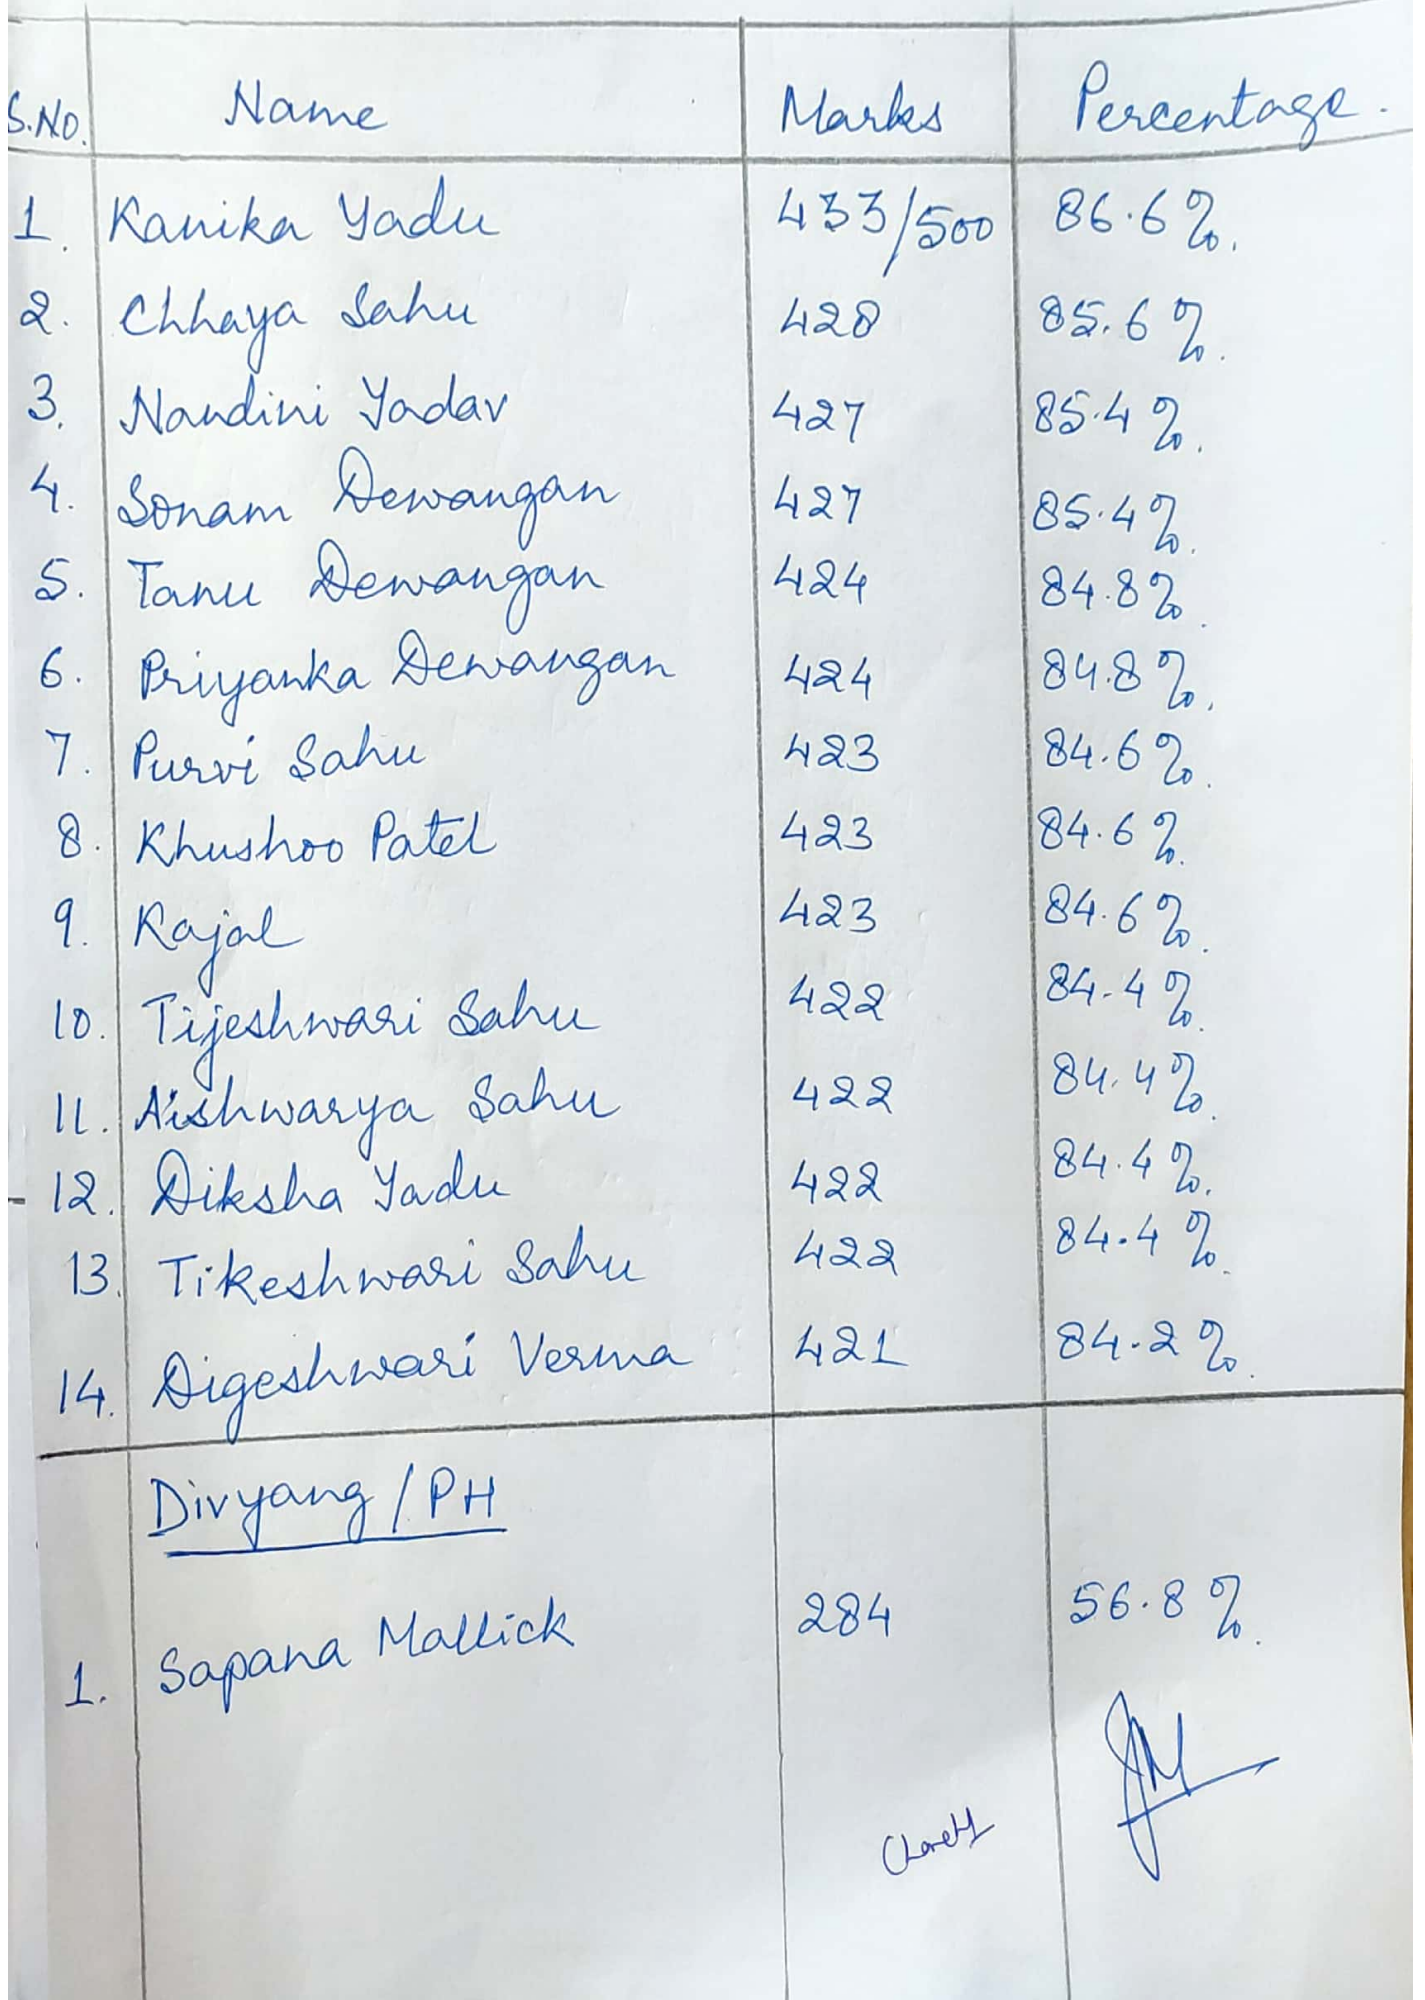 S.No. Name Marks Percentage.
1. Kanika Yadu 433/500 86.6%.
2. Chhaya Sahu 428 85.6%.
3. Nandini Yadav 427 85.4%.
4. Sonam Dewangan 427 85.4%.
5. Tanu Dewangan 424 84.8%.
6. Priyanka Dewangan 424 84.8%.
7. Purvi Sahu 423 84.6%.
8. Khushoo Patel 423 84.6%.
9. Kajal 423 84.6%.
10. Tijeshwari Sahu 422 84.4%.
11. Aishwarya Sahu 422 84.4%.
12. Diksha Yadu 422 84.4%.
13. Tikeshwari Sahu 422 84.4%.
14. Digeshwari Verma 421 84.2%.
Divyang/PH
1. Sapana Mallick 284 56.8%.